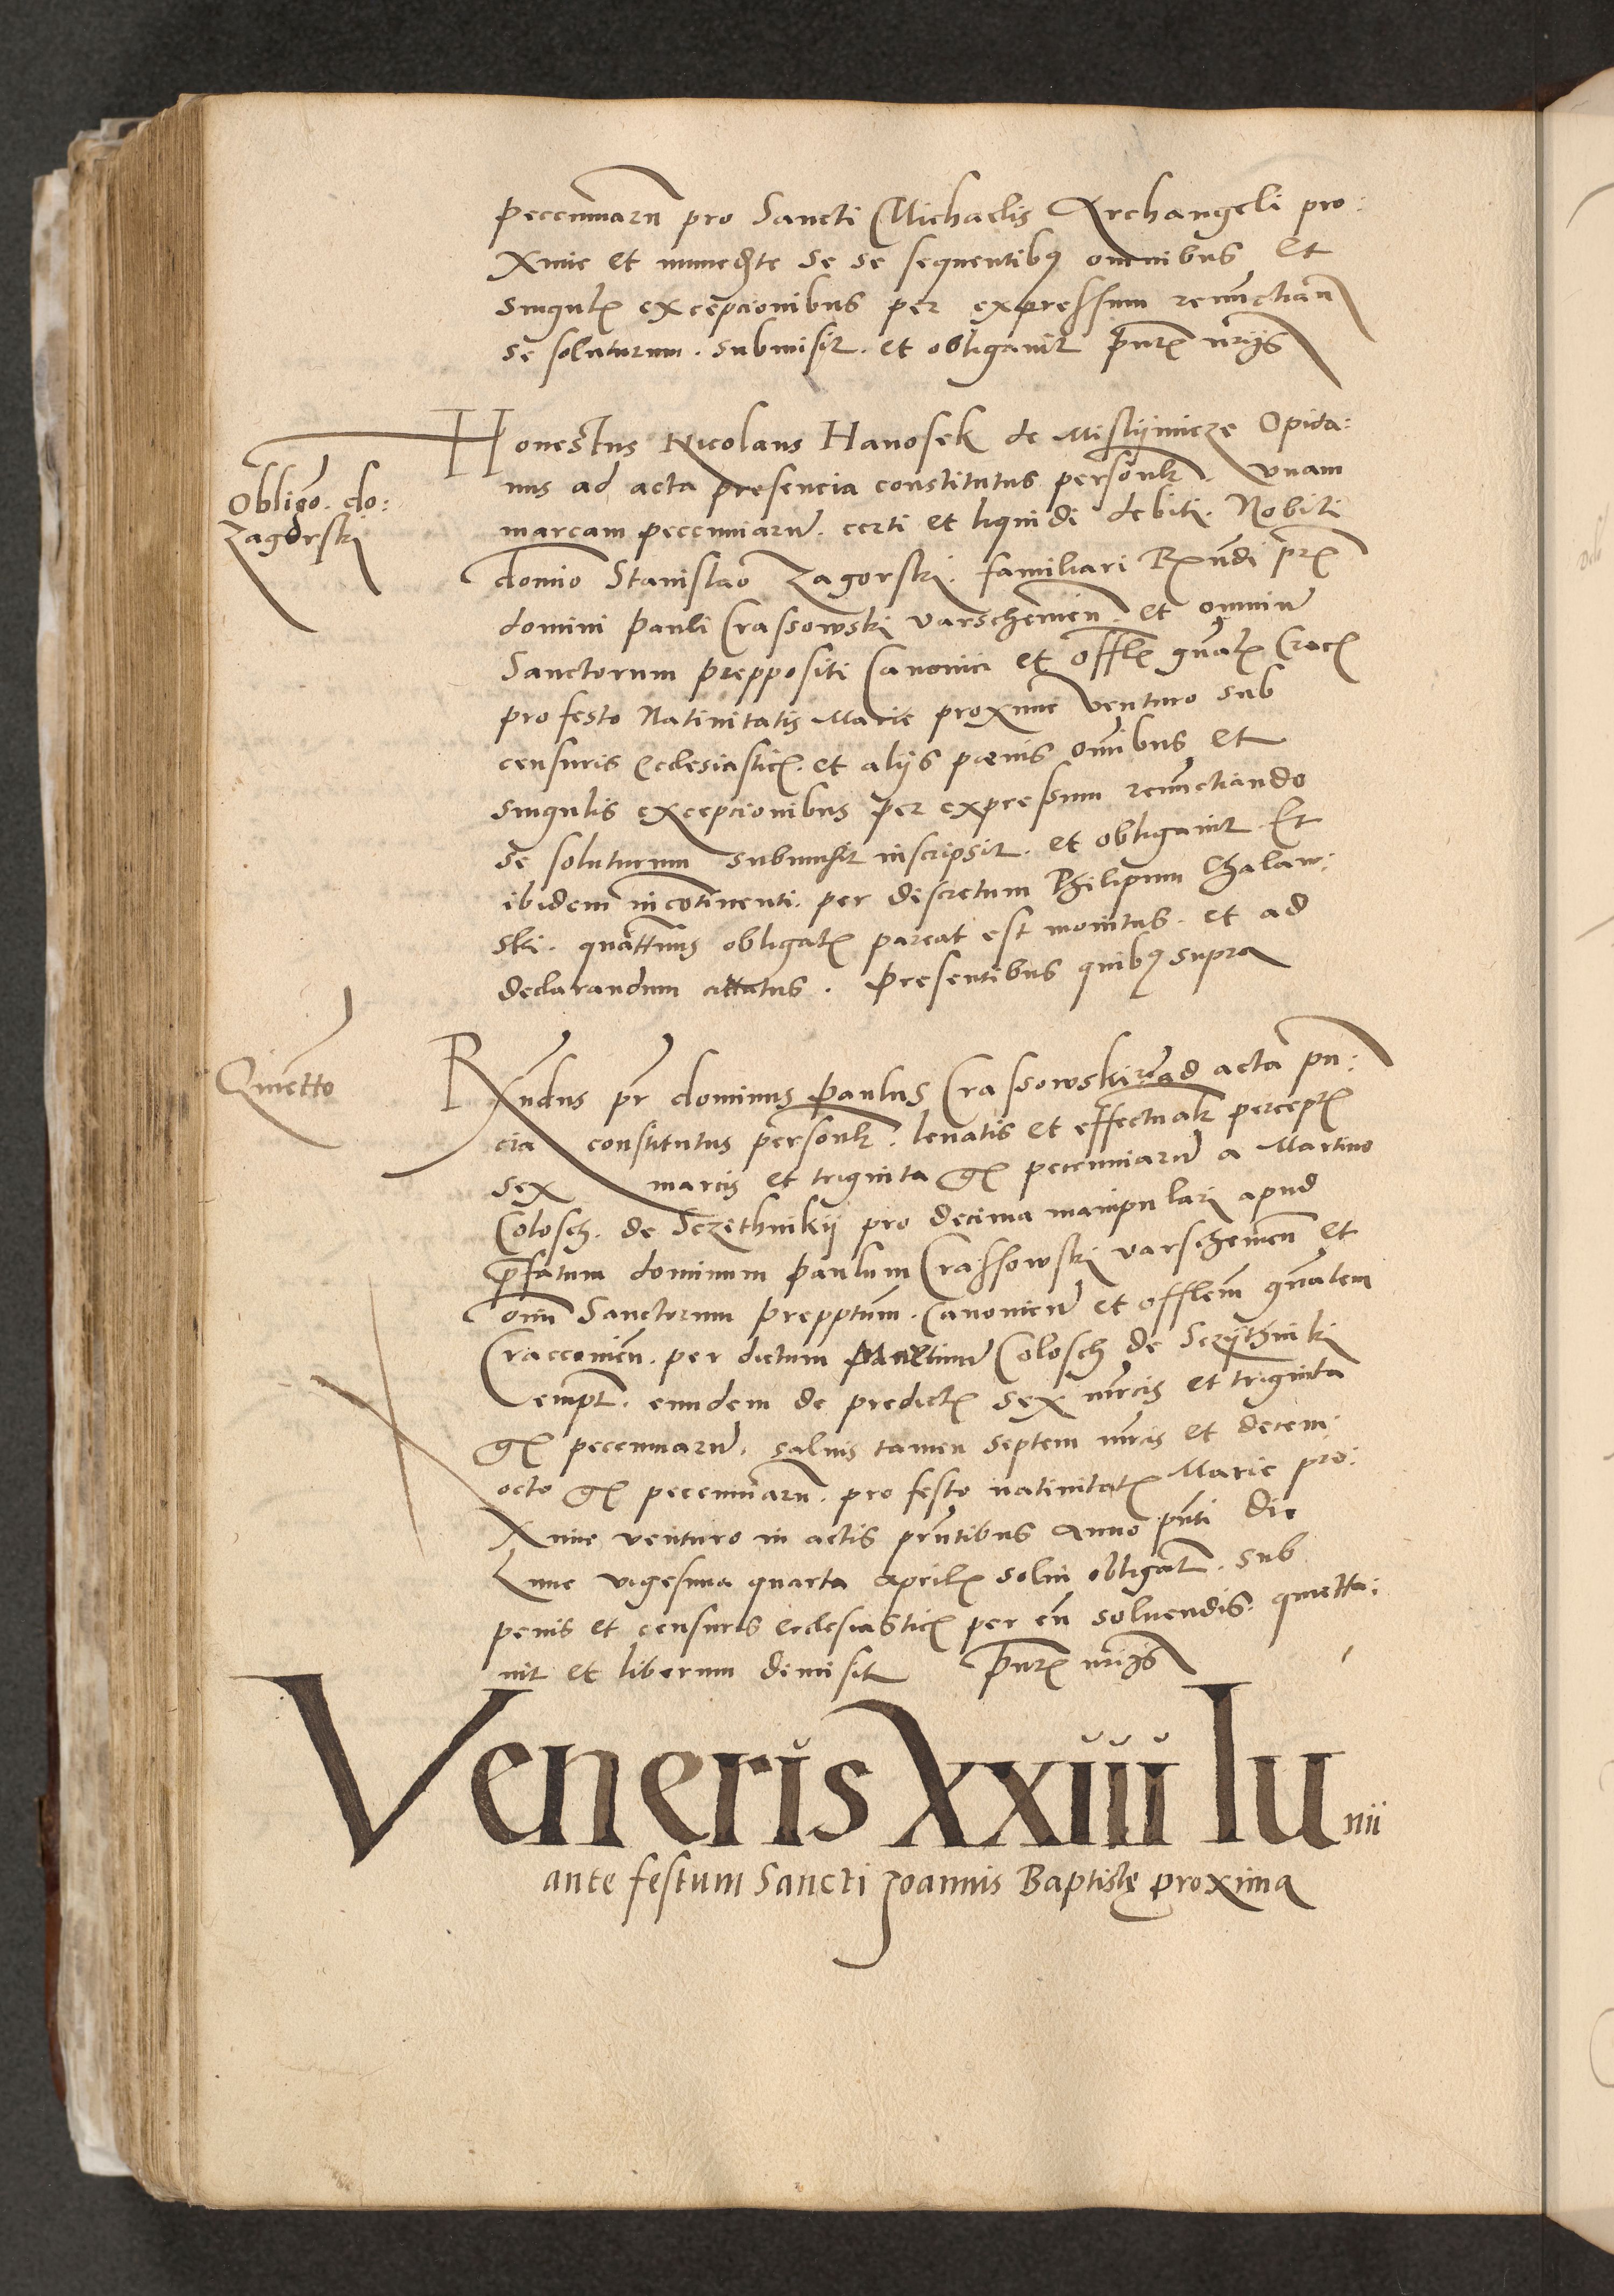 pecunniarum pro Sancti Michaelis Archangeli pro:
xime et immediate se se sequentibus omnibus et
singulis excepcionibus per expressum renunctian
se soluturum . submisit . et obligavit pntz nrijs
Obligo. do:
Zagorski
Honestus Nicolaus Hanosek de Mislijmicze Opida:
nus ad acta presencia constitutus personlr . vnam
marcam pecunniarum . certi et liquidi debiti . Nobili
domino Stanislao Zagorski . familiari Rundi prs
domini Pauli Crassowski varschemien . et omnium
Sanctorum preppositi Canonici et offlis gnalis Crac
pro festo Nativitatis Marie proxime venturo sub
censuris Ecclesiastic . et alijs poenis omibus et
singulis excepcionibus per expressum renunctiando
se soluturum submisit inscripsit . et obligavit . Et
ibidem incotinenti . per discretum Philipum Chalaw:
ski . quattinus obligat pareat est monitus . et ad
declarandum citatus . Presentibus quibus supra
Quietto
Rxndus pr dominus Paulus Crassowski ad acta pn:
cia constitutus personlr . levatis et effectualr percept
sex marcis et triginta gr pecunniarum a Martino
Colosch . de Sczithnikij pro decima manipulari apud
prefatum dominum Paulum Crassowski varschemien et
oim Sanctorum prepptum . Canonicum et offlem gnalem
Cracconien . per dictum Martinum Colosch de Sczijthniki
empt . eundem de predict sex mrcis et triginta
gr pecunniarum . salvis tamen septem mrcis et decem
octo gr pecunniarum . pro festo nativitat Marie pro:
xime venturo in actis prntibus Anno pnti die
Lune vigesima quarta Aprilis solvi obligat . sub
penis et censuris ecclesiastic per eum solvendis . quietta:
vit et liberum dimisit pntz nrijs
Veneris xxiii Iunii
ante festum Sancti Joannis Baptistę proxima